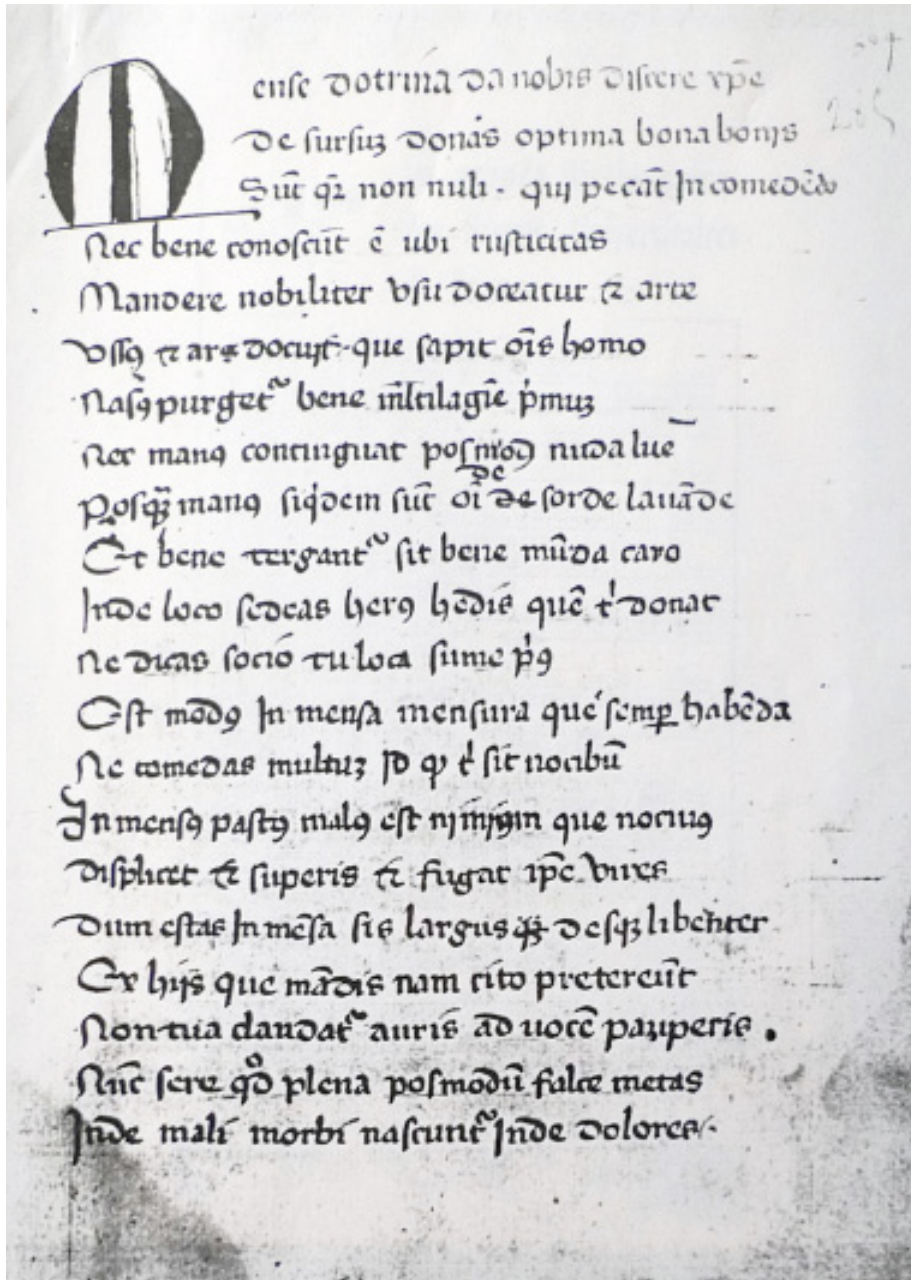 Mense dotrina da nobis discere xp̄e
De sursuʒ donās optima bona bonis
Sūt qꝫ non nuli · qui pecāt In comedēdo
Nec bene conoscūt ē ubi rusticitas
Mandere nobiliter vsu doceatur ⁊ arte
vsꝰ ⁊ ars docuit · que sapit oīs homo
Nasꝰ purget᷑ bene m̄cilagīe p̓muʒ
Nec manꝰ continguat posmod̄ nuda luē
Posqꝫ manꝰ siq̓dem sūt oī de de sorde lauāde
Et bene tergant᷑ sit bene mūda caro
Inde loco sedeas herꝰ hedis quē t̓ donat
Ne dicas socio tu loca sume p̓ꝰ
Est modꝰ In mensa mensura que semꝑ habēda
Ne comedas multuʒ Id ꝙ t̓ sit nocibū
In mensꝰ pastꝰ malꝰ est que nociuꝰ
Displicet ⁊ superis ⁊ fugat ip̄e vires
Dum estas In mēsa sis largus desqꝫ libenter
Ex hijs que mādis nam cito pretereūt
Non tua claudat᷑ auris ad uocē pauperis .
Nūc sere qd̊ plena posmodū falce metas
Inde mali morbi nascunt᷑ Inde dolores ·